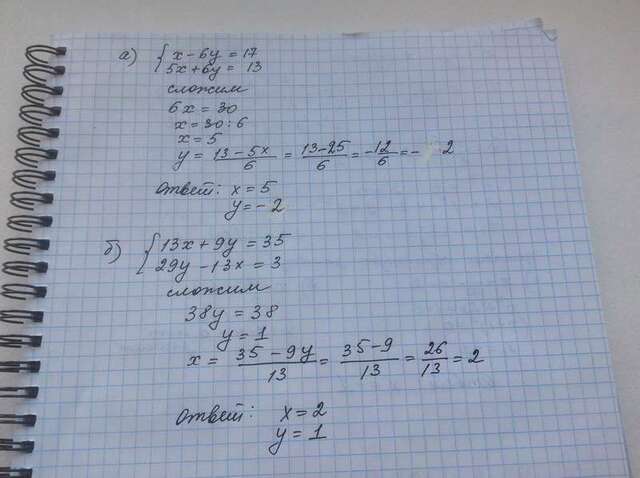 а) { x - 6y = 17
5x + 6y = 13
сложим
6x = 30
x = 30 : 6
x = 5
y = (13 - 5x)/6 = (13 - 25)/6 = -12/6 = - 2
Ответ: x = 5
y = - 2
б) { 13x + 9y = 35
29y - 13x = 3
сложим
38y = 38
y = 1
x = (35 - 9y)/13 = (35 - 9)/13 = 26/13 = 2
Ответ: x = 2
y = 1